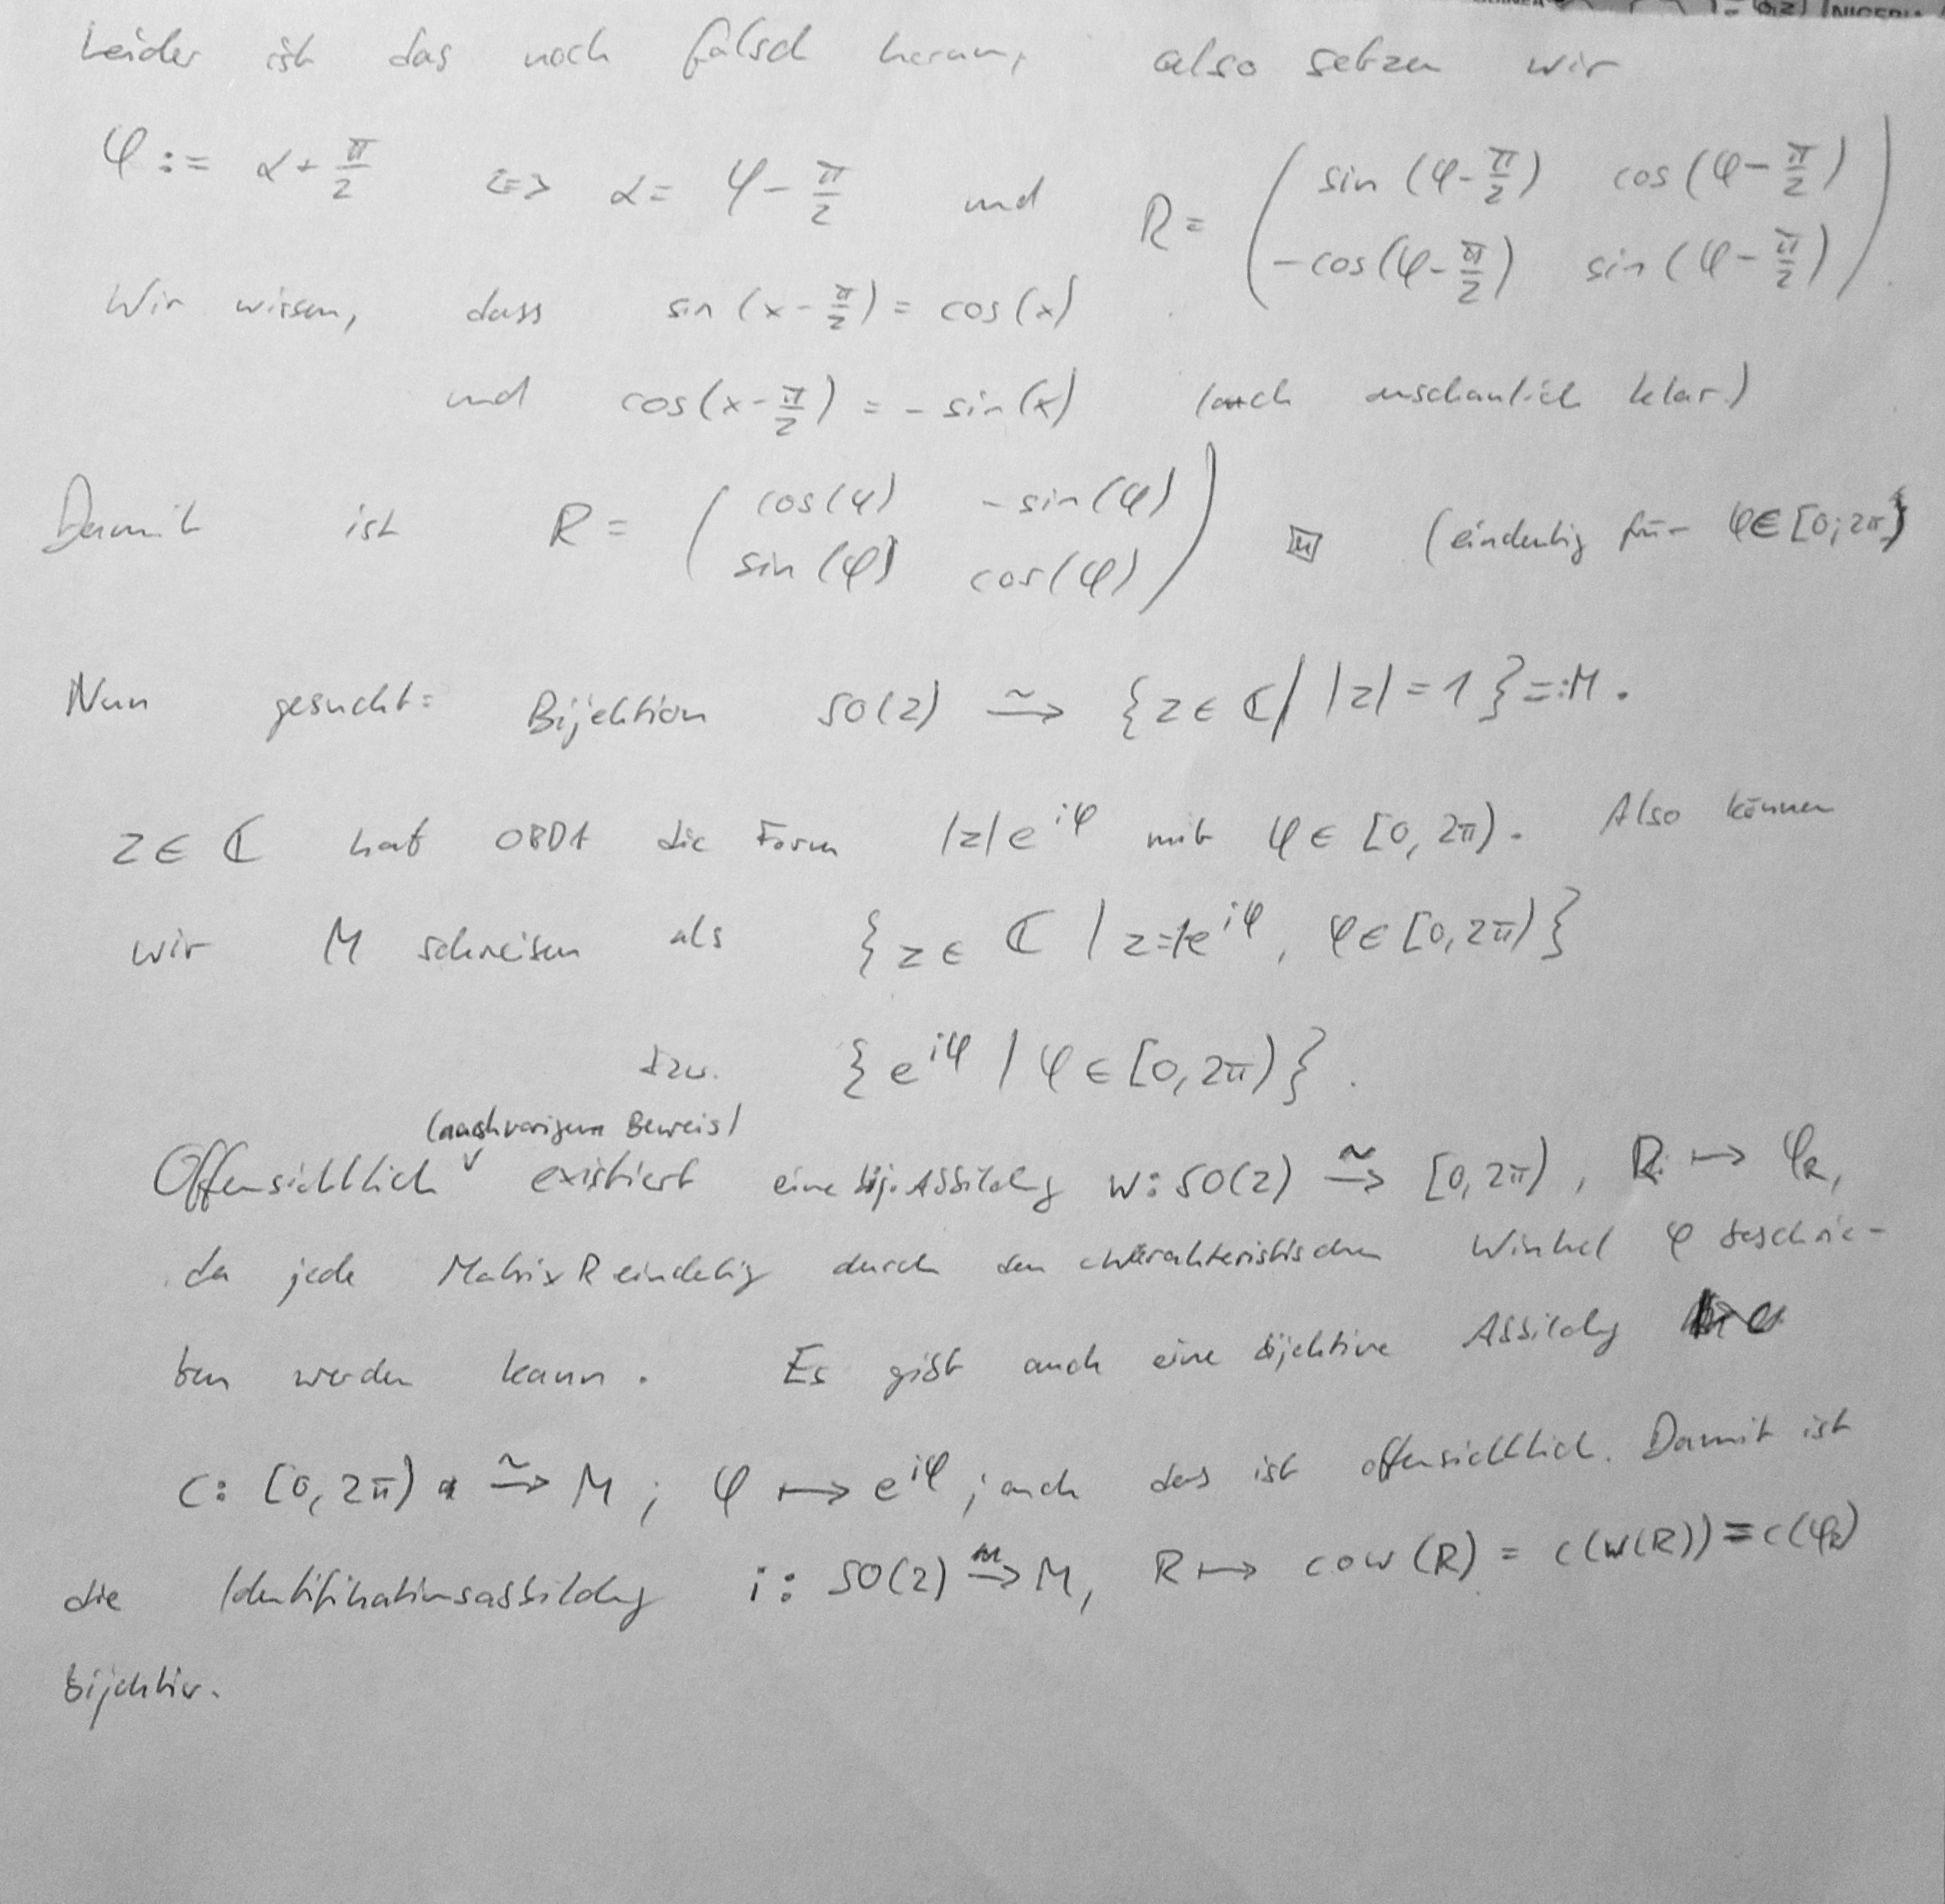 Leider ist das noch falsch herum, also setzen wir
φ := α + π/2 <=> α = φ - π/2 und R = ( sin (φ - π/2) cos (φ - π/2)
-cos(φ - π/2) sin (φ - π/2) )
Wir wissen, dass sin (x - π/2) = cos (x)
und cos(x - π/2) = - sin(x) (auch anschaulich klar)
Damit ist R = ( cos(φ) - sin(φ)
sin (φ) cos(φ) ) (eindeutig für φ∈ [0; 2π)
Nun gesucht: Bijektion SO(2) ⥲ {z ∈ ℂ | |z| = 1} =: M.
z ∈ ℂ hat OBDA die Form |z| e^{iφ} mit φ ∈ [0, 2π). Also können
wir M schreiben als {z ∈ ℂ | z = 1e^{iφ}, φ ∈ [0, 2π)}
bzw. {e^{iφ} | φ ∈ [0, 2π)}.
(nach vorigem Beweis)
Offensichtlich existiert eine bij. Abbildg w: SO(2) ⥲ [0, 2π), R ↦ φ_R,
da jede Matrix R eindetig durch den charakteristischen Winkel φ beschrie-
ben werden kann. Es gibt auch eine bijektive Abbildg
c: [0, 2π) ⥲ M; φ ↦ e^{iφ}; auch das ist offensichtlich. Damit ist
die Identifikationsabbildg i: SO(2) ⥲ M, R ↦ c∘w (R) = c(w(R)) = c(φ_R)
bijektiv.